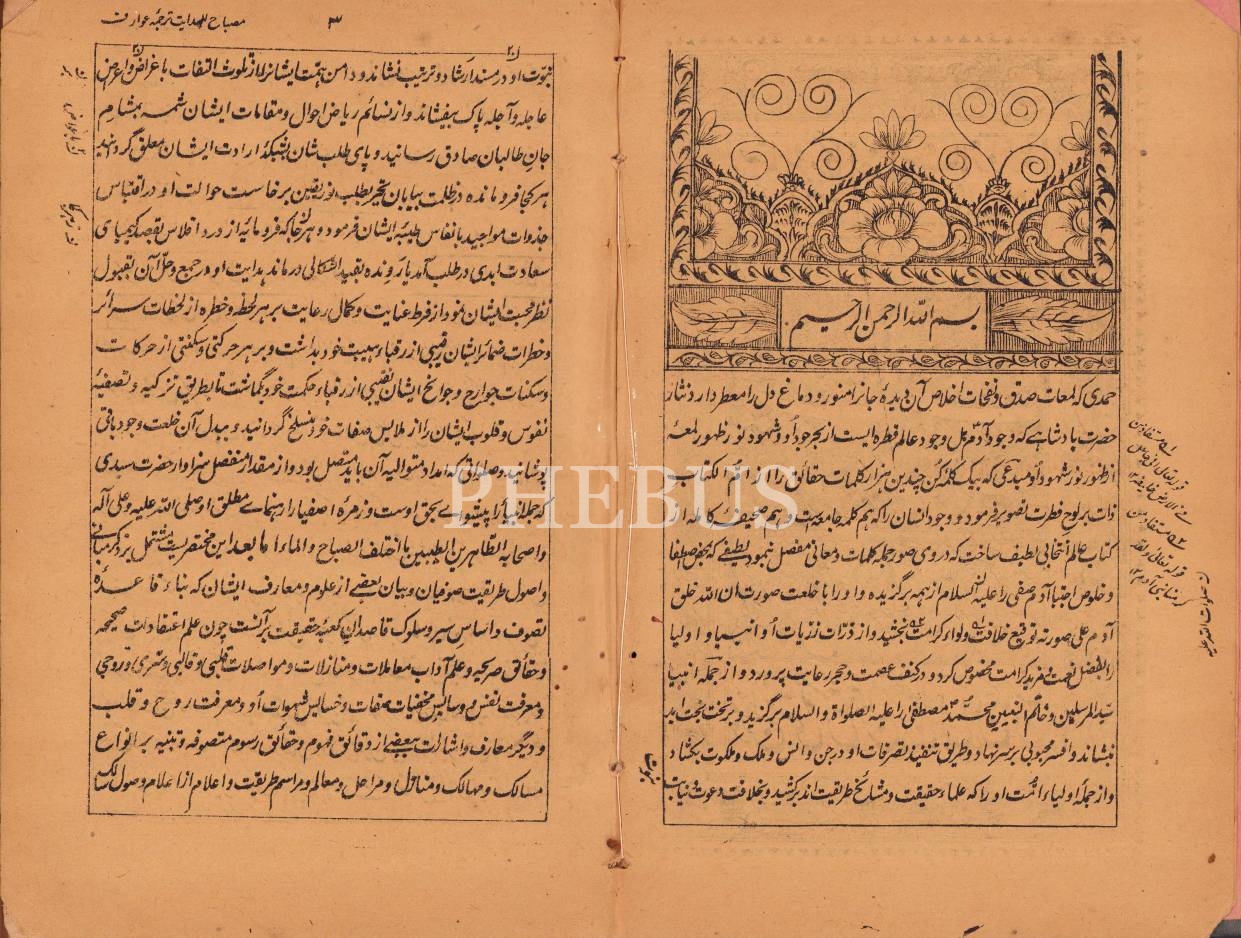 بسم الله الرحمن الرحیم
حمدی که لمعات صدق و نفحات اخلاص آن دیدهٔ جانرا منور و دماغ دل را معطر دارد نثار
حضرت پادشاهے که وجود آدم بل وجود عالم قطره ایست از بحر جود أو و شهود نور ظهور لمعهٔ
از ظهور نور شهود أو مبدعی که بیک کلمهٔ کن چندین هزار کلمات حقائق را از ام الکتاب
ذات بر لوح فطرت تصویر فرمود و وجود انسان را که هم کلمهٔ جامعه است و هم صحیفهٔ کامله از
کتاب عالم انتخابی لطیف ساخت که در وی صور جمله کلمات و معانی مفصل نمود لطیفے که بمحض اصطفا
و خلوص اجتبا آدم صفی را علیه السلام از همه برگزیده و او را با خلعت صورت ان الله خلق
آدم علی صورته توقیع خلافت و لواء کرامت بخشید و از ذرات ذریات أو انبیا و اولیا
را بفضل نعمت و مزید کرامت مخصوص کرد و در کنف عصمت و حجر رعایت پرورد و از جمله انبیا
سید المرسلین و خاتم النبیین محمد مصطفی را علیه الصلواة و السلام برگزید و بر تخت بخت ابد
بنشاند و افسر محبوبی بر سر نهاد و طریق تنفیذ تصرفات او در جن و انس و ملک و ملکوت بکشاد
و از جمله اولیاء امت او را که علماء حقیقت و مشائخ طریقت اند برکشید و بخلافت دعوت و نیابت
نبوت
مصباح الهدایت ترجمهٔ عوارف
۳
نبوت او در مسند ارشاد و ترتیب نشاند و دامن همت ایشانرا از تلوث التفات باغراض و اعراض
عاجله و آجله پاک بیفشاند و از نسائم ریاض احوال و مقامات ایشان شمه بمشارم
جان طالبان صادق رسانید و پای طلب شان بشبکهٔ ارادت ایشان معلق گردانید
هر کجا فرو مانده در ظلمت بیابان تحیر بطلب نور یقین برخاست حوالت او در اقتباس
جذوات مواجید بانفاس طیبهٔ ایشان فرمود و هر جا که فرومائیه از درد افلاس بقصد کیمیای
سعادت ابدی در طلب آمد یا رونده بقید اشکالی درماند بدایت او در جمع و حل آن بقبول
نظر محبت ایشان نمود از فرط عنایت و کمال رعایت بر هر لحظه و خطره از لحظات سرائر
و خطرات ضمائر ایشان رقیبی از رقباء هیبت خود بداشت و بر هر حرکتی و سکنتی از حرکات
و سکنات جوارح و جوانح ایشان نقیبی از رقباء حکمت خود گماشت تا بطریق تزکیه و تصفیهٔ
نفوس و قلوب ایشان را از ملابس صفات خود منسلخ گردانید و مبدل آن خلعت وجود باقی
پوشانید و صلواتی که امداد متوالیه آن باید متصل بود و از مقدار منفصل سزاوار حضرت سیدی
که جمله انبیا را پیشوا بحق اوست و زمرهٔ اصفیا را رهنماے مطلق او صلی الله علیه و علی آله
و اصحابه الطاهرین الطیبین ما اختلف الصباح و المساء اما بعد این مختصریست مشتمل بر ذکر مبانی
و اصول طریقت صوفیان و بیان بعضے از علوم و معارف ایشان که بناء قاعدهٔ
تصوف و اساس سیر و سلوک قاصدان کعبهٔ حقیقت بر آنست چون علم اعتقادات صحیحه
و حقائق صریحه و علم آداب معاملات و منازلات و مواصلات قلبی و قالبی و سری و روحی
و معرفت نفس و وسائس مخفیات صفات و خسائس شهوات أو و معرفت روح و قلب
و دیگر معارف و اشارات بعضے از دقائق فهوم و حقائق رسوم متصوفه و تنبیه بر انواع
مسالک و مهالک و منازل و مراحل و معالم و مراسم طریقت و اعلام از اعلام وصول
PHEBUS